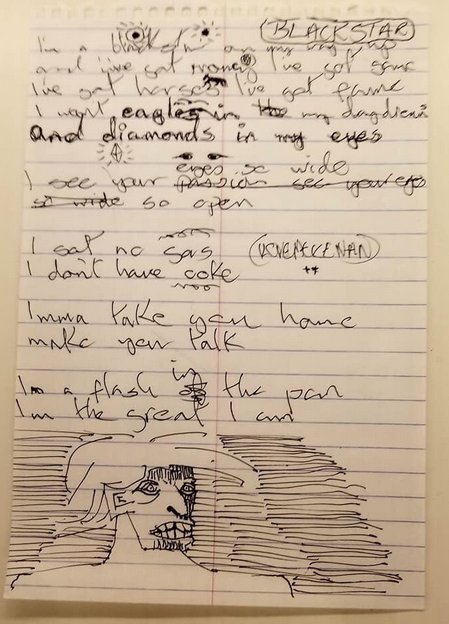 BLACKSTAR
I'm a blackstar on my way up
and I've got money I've got game
I've got horses I've got fame
I want eagles in the my daydreams
And diamonds in my eyes
eyes so wide
I see your passion see your eyes
so wide so open
I no
I don't have coke
Imma take you home
make you talk
I'm a flash in the pan
I'm the great I am